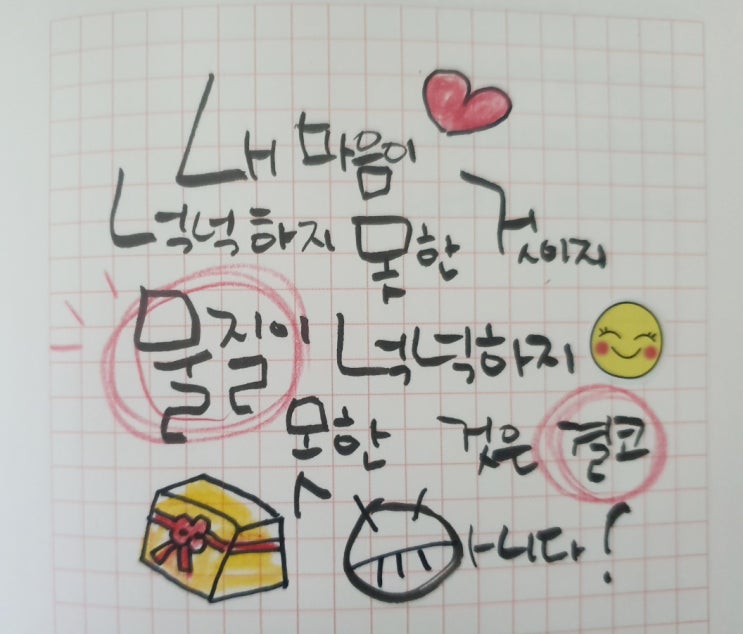 내 마음이
넉넉하지 못한 것이지
물질이 넉넉하지
못한 것은 결코
아니다!